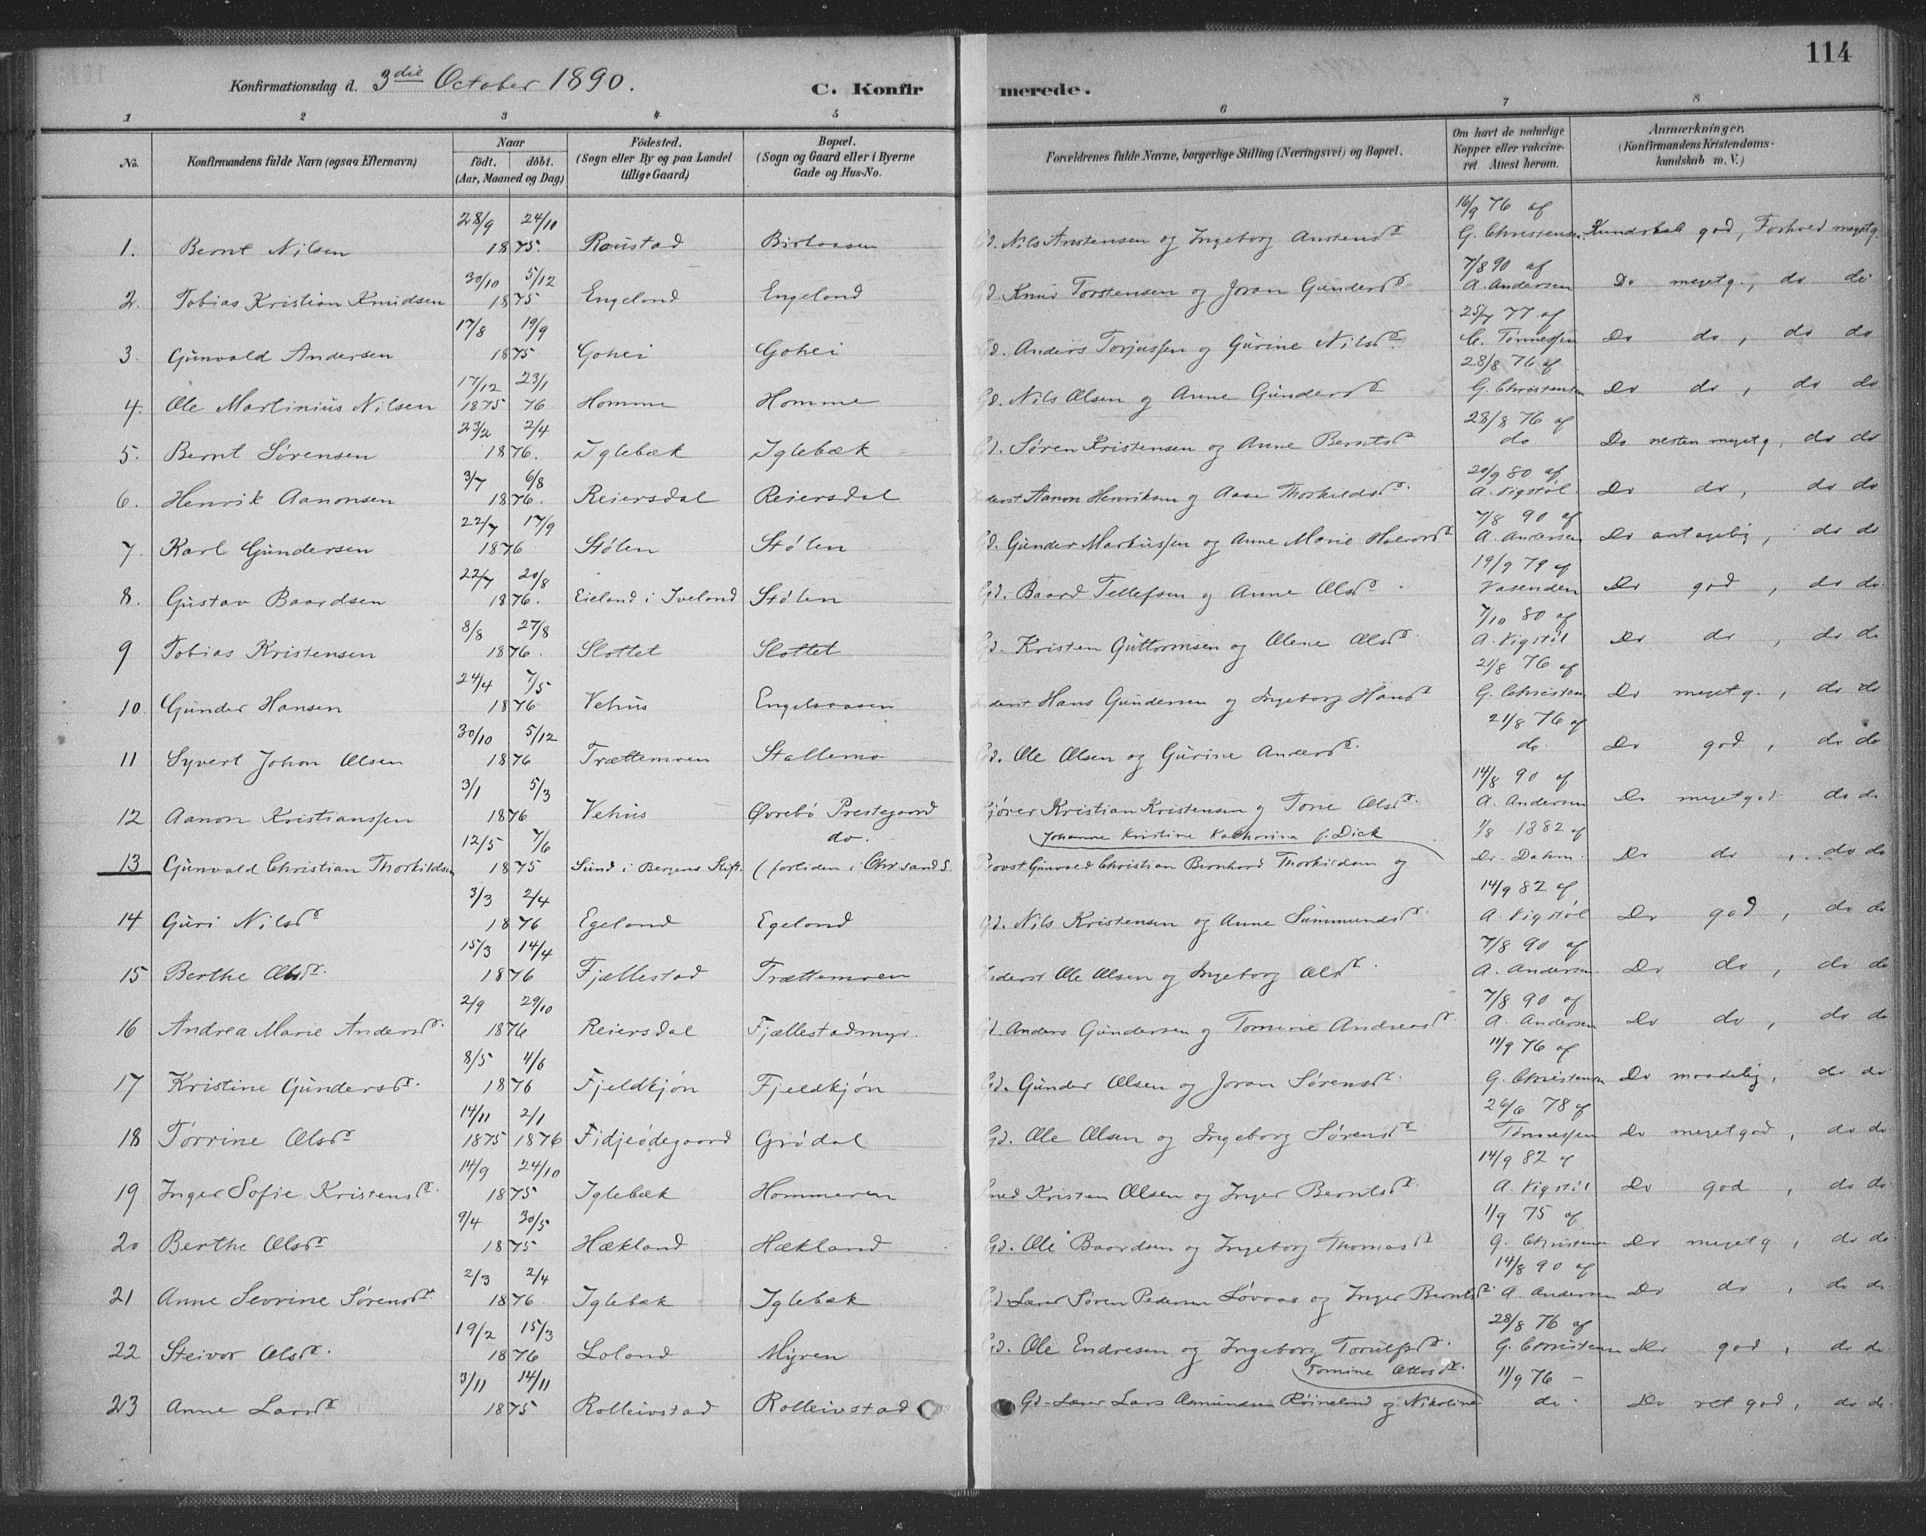 114
Konfirmationsdag d. 3die October 1890. C. Konfirmerede.
1 2 3 4 5 6 7 8
No. Konfirmandens fulde Navn (ogsaa Efternavn) Naar født. døbt. (Aar, Maaned og Dag) Fødested. (Sogn eller By og paa Landet tillige Gaard) Bopæl. (Sogn og Gaard eller i Byerne Gade og Hus-No. Forældrenes fulde Navne, borgerlige Stilling (Næringsvei) og Bopæl. Om havt de naturlige Kopper eller vakcineret Attest herom. Anmærkninger. (Konfirmandens Kristendomskundskab m. V.)
28/9 24/10 16/9 76 af
1. Bernt Nilsen 1875. Roustad Birkaasen Gd. Nils Anstensen og Ingeborg Anstensdr G. Christensen Kundskab god, Forhold megetg.
30/10 5/12 7/8 90 af
2. Tobias Kristian Knudsen 1875 Engeland Engeland Gd. Knud Torstensen og Joran Gundersdr A. Andersen Do megetg., do do
17/8 19/9 25/7 77 af
3. Gunvald Andersen 1875 Gohei Gohei Gd. Anders Torjussen og Gurine Nilsdr C. Tønnessen Do do, do do
17/12 23/1 28/8 76 af
4. Ole Martinius Nilsen 1875 76 Homme Homme Gd. Nils Olsen og Anne Gundersdr G. Christensen Do do, do do
23/2 2/4 28/8 76 af
5. Bernt Sørensen 1876. Iglebæk Iglebæk Gd. Søren Kristensen og Anne Berntsdr do Do nesten megetg, do do
3/7 6/8 20/9 80 af
6. Henrik Aanonsen 1876. Reiersdal Reiersdal Inderst Aanon Henriksen og Aase Thorkildsdr. A. Vigstøl. Do do, do do
22/7 17/9 7/8 90 af
7. Karl Gundersen 1876 Stølen Stølen Gd. Gunder Markussen og Anne Marie Halvorsdr A. Andersen Do antagelig, do do
22/7 20/8 19/9 79 af
8. Gustav Baardsen 1876. Eieland i Iveland Stølen Gd. Baard Tellefsen og Anne Olsdr. Vasenden Do god, do do.
8/8 27/8 7/10 80 af
9 Tobias Kristensen 1876. Slottet Slottet Gd. Kristen Guttormsen og Olene Olsdr. A. Vigstøl Do do, do do
24/4 7/5 21/8 76 af
10. Gunder Hansen 1876 Vehus Engelsaasen Inderst Hans Gundersen og Ingeborg Hansdr G. Christens Do megetg., do do
30/10 5/12 21/8 76 af
11 Syvert Johan Olsen 1876 Trættemoen Stallemo Gd. Ole Olsen og Gurine Andersdr. do. Do god, do do
3/1 5/3 14/8 90 af
12 Aanon Kristianssen 1876 Vehus Øvrebø Prestegaard Kristian Kristensen og Tone Olsdr. A. Andersen Do megetgod do do
12/5 7/6 do. Johanne Kristine Kathorina f. Dick 1/8 1882 af
13 Gunvald Christian Thorkildsen 1875 Sund i Bergens Stift. (fortiden i Chrsands. Provst Gunvald Christian Bernhard Thorkildsen og Dr. Dahm. Do do, do do
3/3 2/4 14/9 82 af
14 Guri Nilsdr 1876 Egeland Egeland Gd. Nils Kristensen og Anne Summundsdr. A. Vigstøl Do god, do do
15/3 14/4 7/8 90 af
15 Berthe Olsdr. 1876 Fjællestad Trættemoen Inderst Ole Olsen og Ingeborg Olsdr. A. Andersen. Do do, do do
2/9 29/10 7/8 90 af
16 Andrea Marie Andersdr. 1876 Reiersdal Fjællestadmyr. Gd. Anders Gundersen og Tomine Andreasdr. A. Andersen Do do, do do
8/5 4/6 11/9 76 af
17 Kristine Gundersdr. 1876 Fjeldkjøn Fjeldkjøn Gd. Gunder Olsen og Joran Sørensdr. G. Christensen Do maadelig, do do
14/11 2/1 26/6 78 af
18 Torrine Olsdr 1875 1876 Fidjeødegaard Grødal Gd. Ole Olsen og Ingeborg Sørensdr Tønnessen Do megetgod, do do
14/9 24/10 14/9 82 af
19 Inger Sofie Kristensdr. 1875 Iglebæk Hommeren Smed Kristen Olsen og Inger Berntsdr. A. Vigstøl Do god, do do
9/4 30/5 1/9 75 af
20 Berthe Olsdr 1875 Hækland Hækland Gd. Ole Baardsen og Ingeborg Thomasdr G. Christens Do megetg, do do.
2/3 2/4 14/8 90 af
21 Anne Sevrine Sørensdr 1876 Iglebæk Iglebæk Gd. Lærer Søren Pedersen Løvaas og Inger Berntsdr. A. Andersen Do do, do do
19/2 15/3 28/8 76 af
22 Steivor Olsdr. 1876 Loland Myren Gd. Ole Endresen og Ingeborg Torulfsdr. G. Christensen Do god, do do.
3/11 14/11 Tomine Ottosdr. 11/9 76 –
23 Anne Larsdr 1875 Rolleivstad Rolleivstad Gd. Lærer Lars Asmundsen Røineland og Nikoline do. Do ret god, do do.